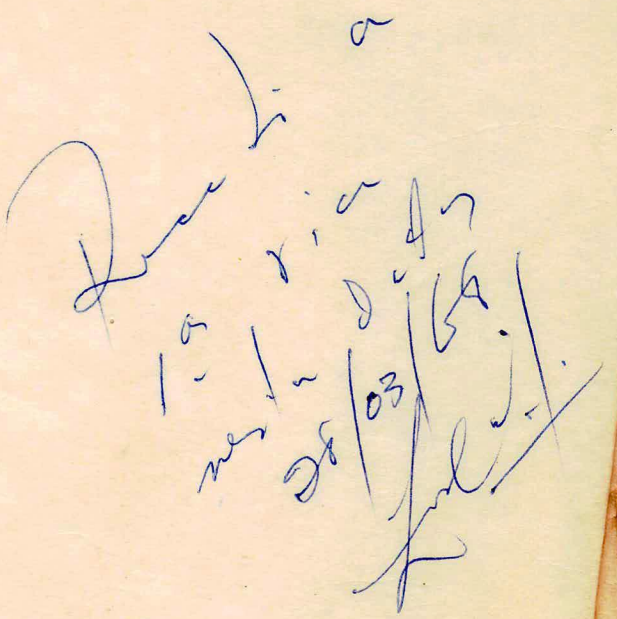 Recebi a
1ª via
nesta data
28/03/68